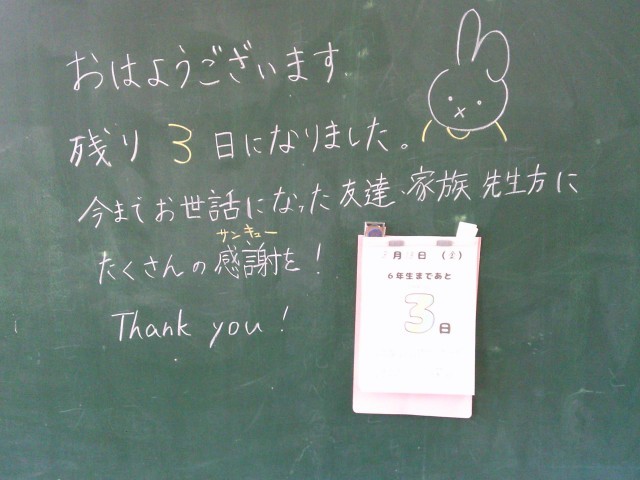 おはようございます
残り3日になりました。
今までお世話になった友達、家族 先生方に
サンキュー
たくさんの感謝を!
Thank you!
月 日 (金)
6年生まであと
3日